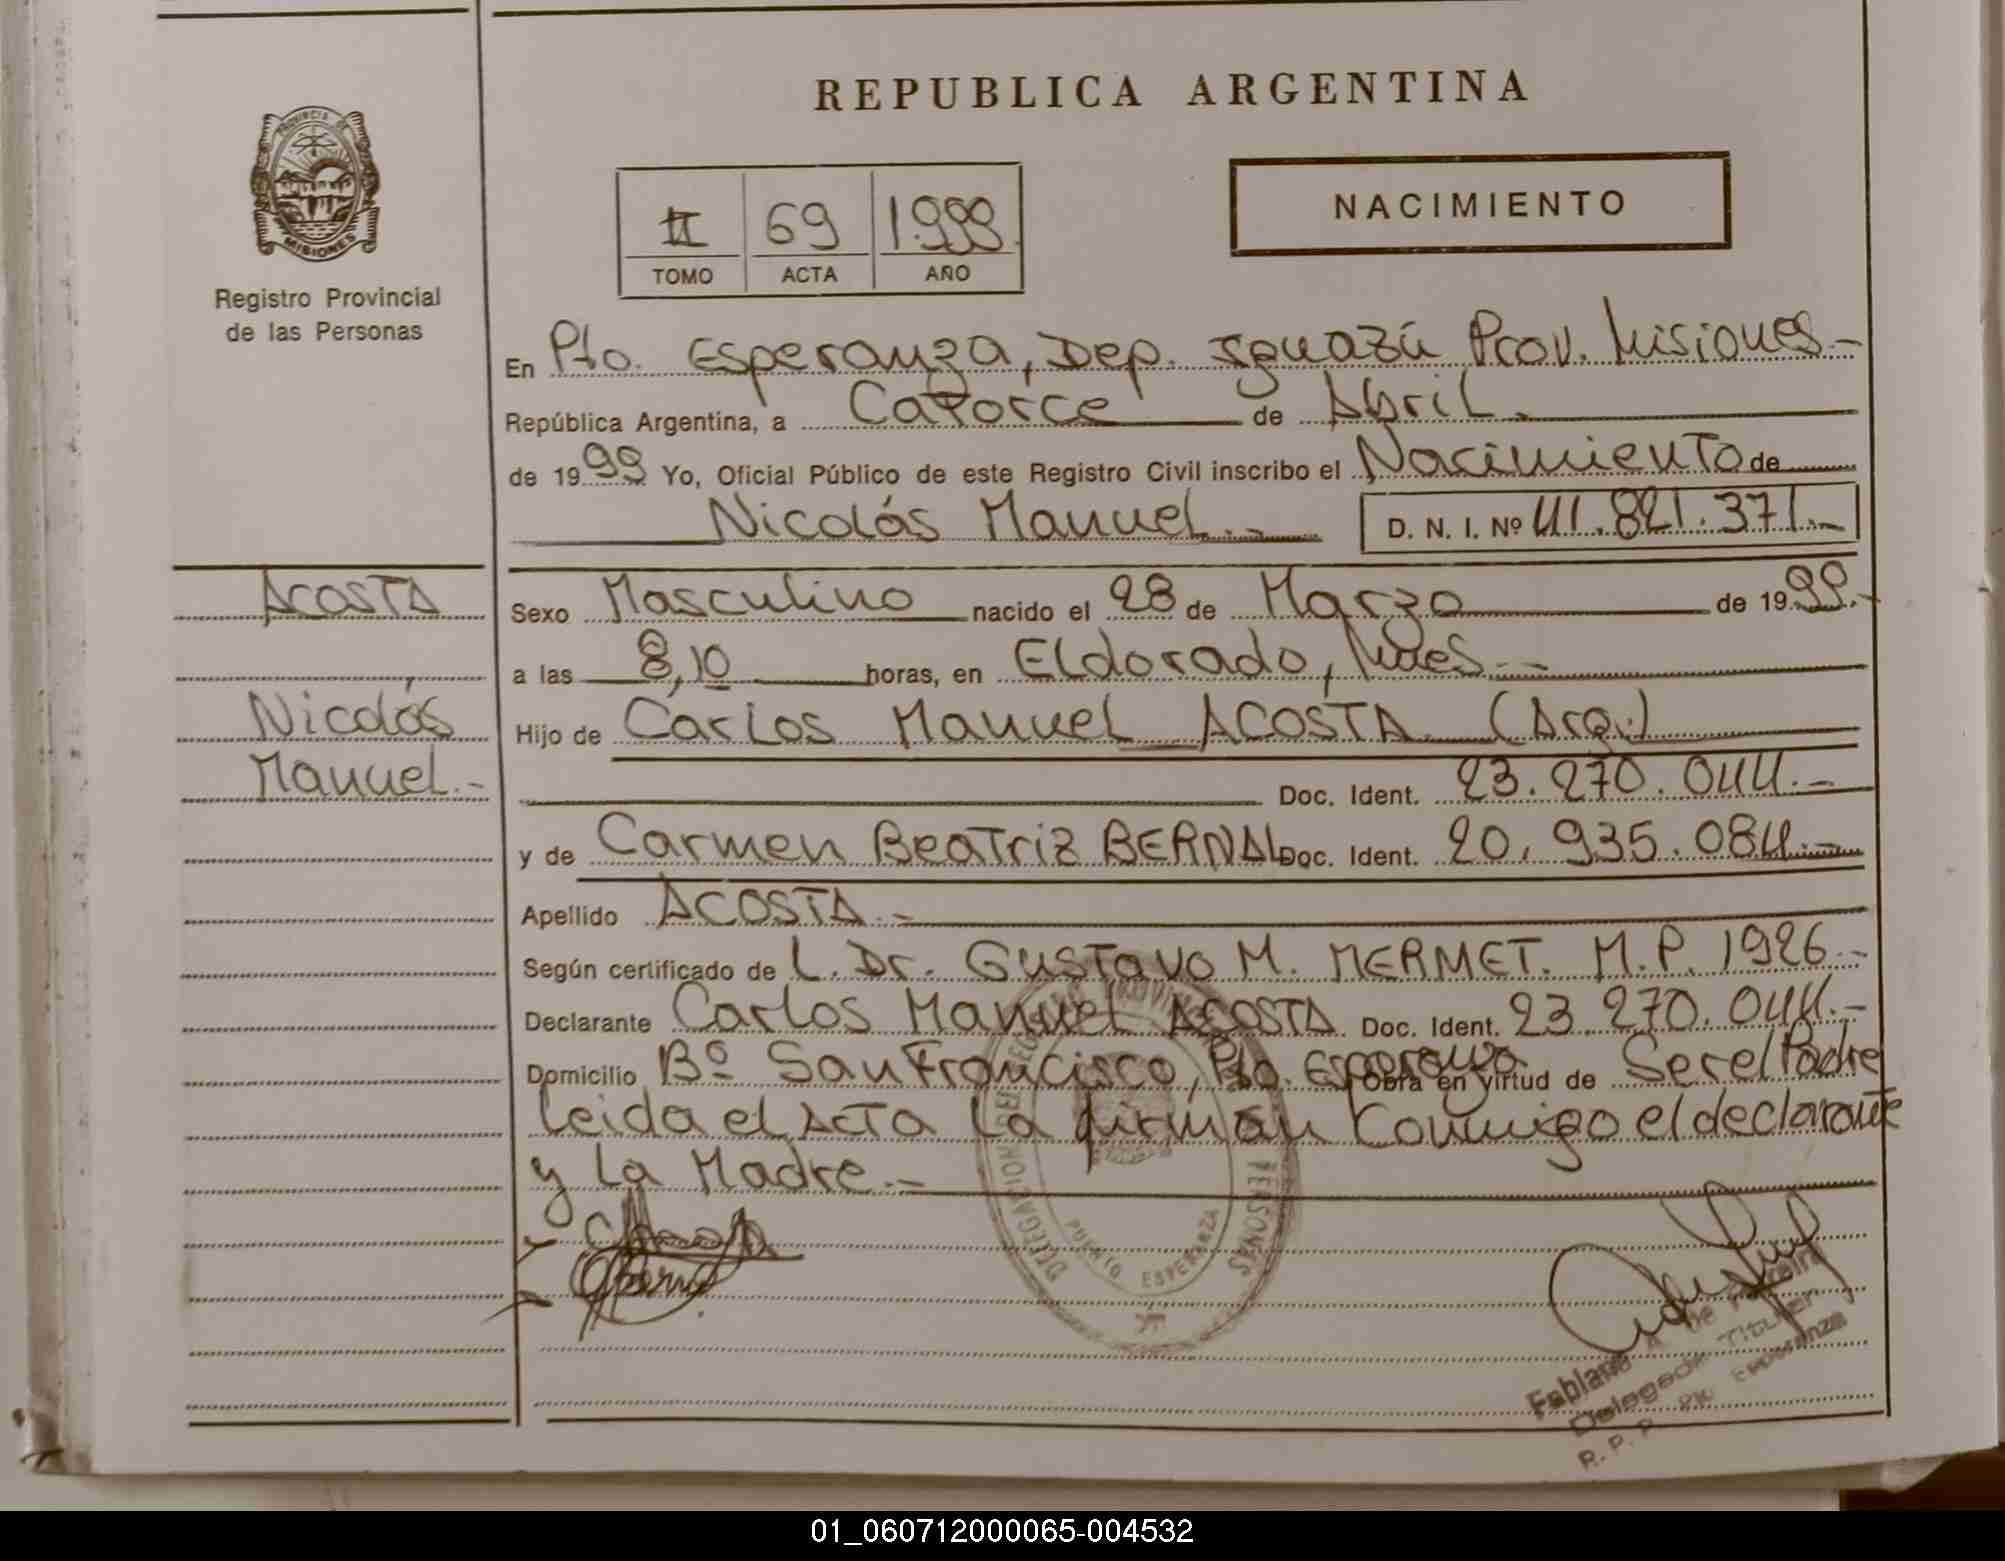 REPUBLICA ARGENTINA
PROVINCIA DE
MISIONES
Registro Provincial
de las Personas
II 69 1.999.
TOMO ACTA AÑO
NACIMIENTO
En Pto. Esperanza, Dep. Iguazú Prov. Misiones.-
República Argentina, a Catorce de Abril.
de 1999 Yo, Oficial Público de este Registro Civil inscribo el Nacimiento de
Nicolás Manuel.- D. N. I. Nº 41.821.371.-
ACOSTA
Nicolás
Manuel.-
Sexo Masculino nacido el 28 de Marzo de 1999.-
a las 8,10 horas, en Eldorado, Mnes.-
Hijo de Carlos Manuel ACOSTA (Arg.)
Doc. Ident. 23.270.044.-
y de Carmen Beatriz BERNAL Doc. Ident. 20.935.084.-
Apellido ACOSTA.-
Según certificado de L. Dr. Gustavo M. MERMET. M.P. 1926.-
Declarante Carlos Manuel ACOSTA Doc. Ident. 23.270.044.-
Domicilio Bº San Francisco, Pto. Esperanza Obra en virtud de Ser el Padre
leida el Acta la firman Conmigo el declarante
y la Madre.-
PUERTO ESPERANZA
Delegada Titular
R. P. P. Pto Esperanza
01_060712000065-004532